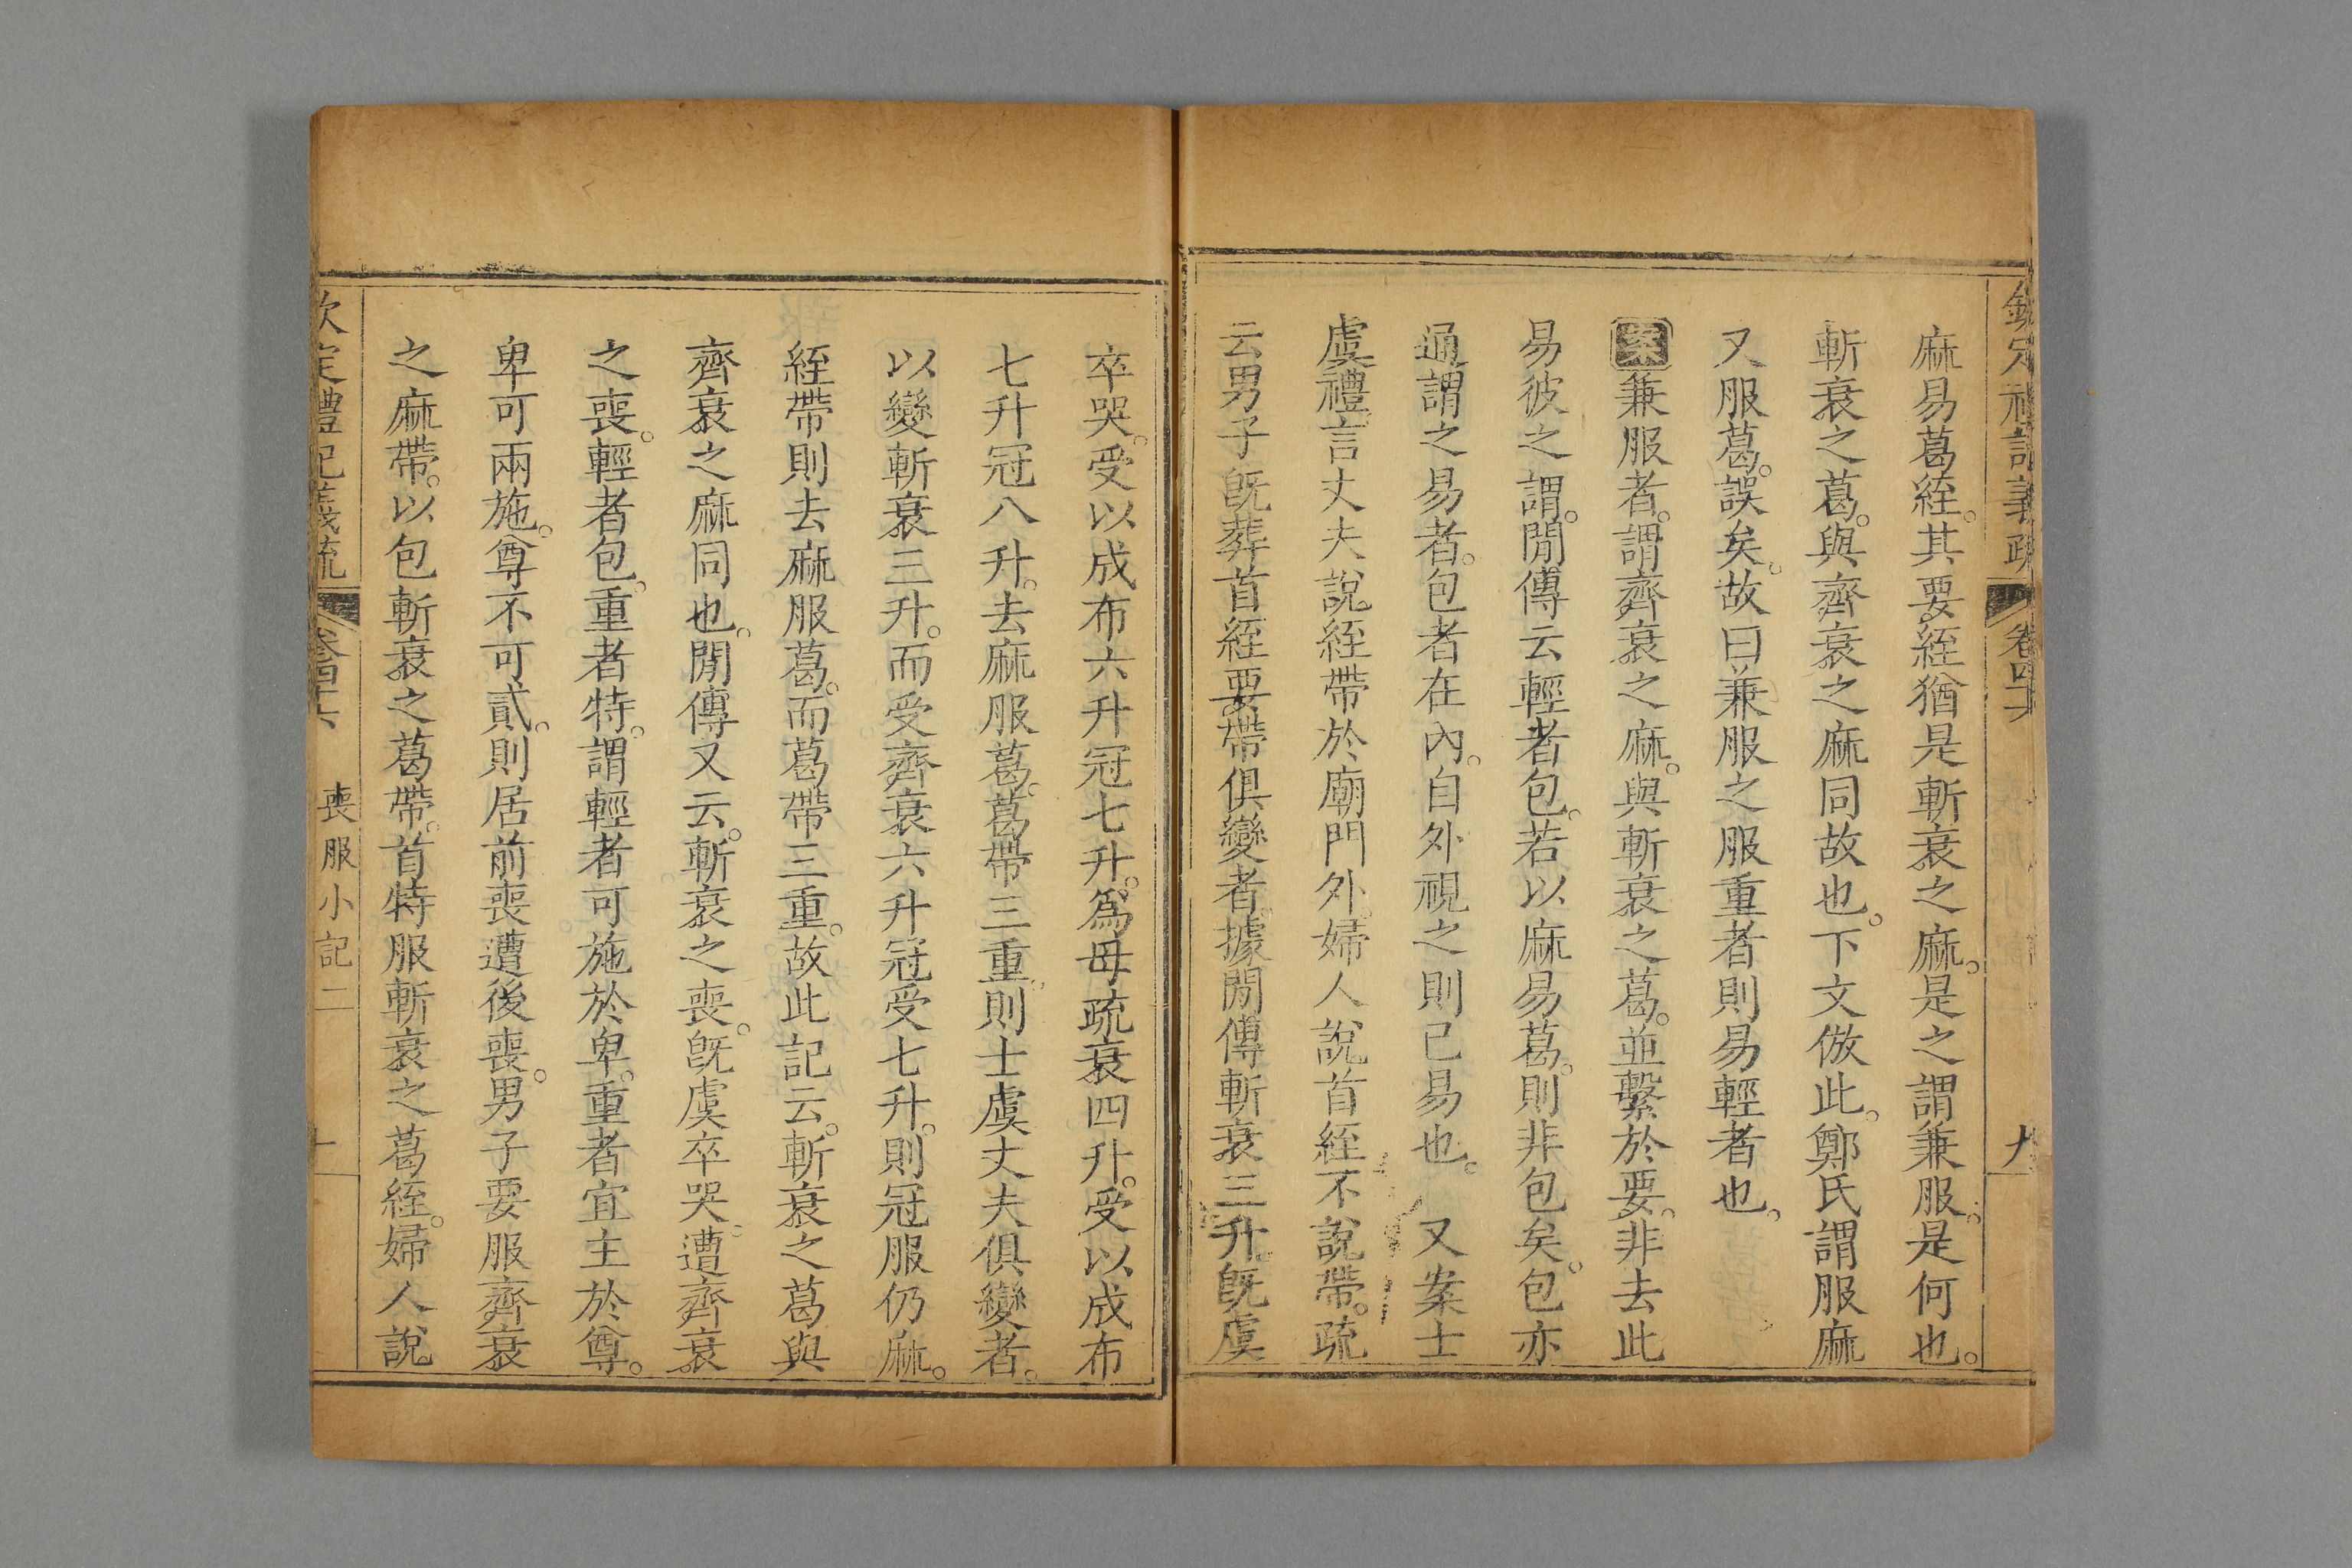 欽定禮記義疏 卷四十六 九
麻易葛絰。其要絰猶是斬衰之麻。是之謂兼服。是何也。
斬衰之葛。與齊衰之麻同故也。下文倣此。鄭氏謂服麻
又服葛。誤矣。故曰兼服之服重者則易輕者也。
案兼服者。謂齊衰之麻。與斬衰之葛。並繫於要。非去此
易彼之謂。閒傳云輕者包。若以麻易葛。則非包矣。包亦
通謂之易者。包者在內。自外視之則已易也。 又案士
虞禮言丈夫說絰帶於廟門外婦人說首絰不說帶。疏
云男子旣葬首絰要帶俱變者。據閒傳斬衰三升。旣虞
卒哭。受以成布六升冠七升。爲母疏衰四升。受以成布
七升冠八升。去麻服葛。葛帶三重。則士虞丈夫俱變者。
以變斬衰三升。而受齊衰六升冠受七升。則冠服仍麻。
絰帶則去麻服葛。而葛帶三重。故此記云。斬衰之葛與
齊衰之麻同也。閒傳又云。斬衰之喪。旣虞卒哭。遭齊衰
之喪。輕者包。重者特。謂輕者可施於卑。重者宜主於尊。
卑可兩施。尊不可貳。則居前喪遭後喪。男子要服齊衰
之麻帶。以包斬衰之葛帶。首特服斬衰之葛絰。婦人說
欽定禮記義疏 卷四十六 喪服小記二 十